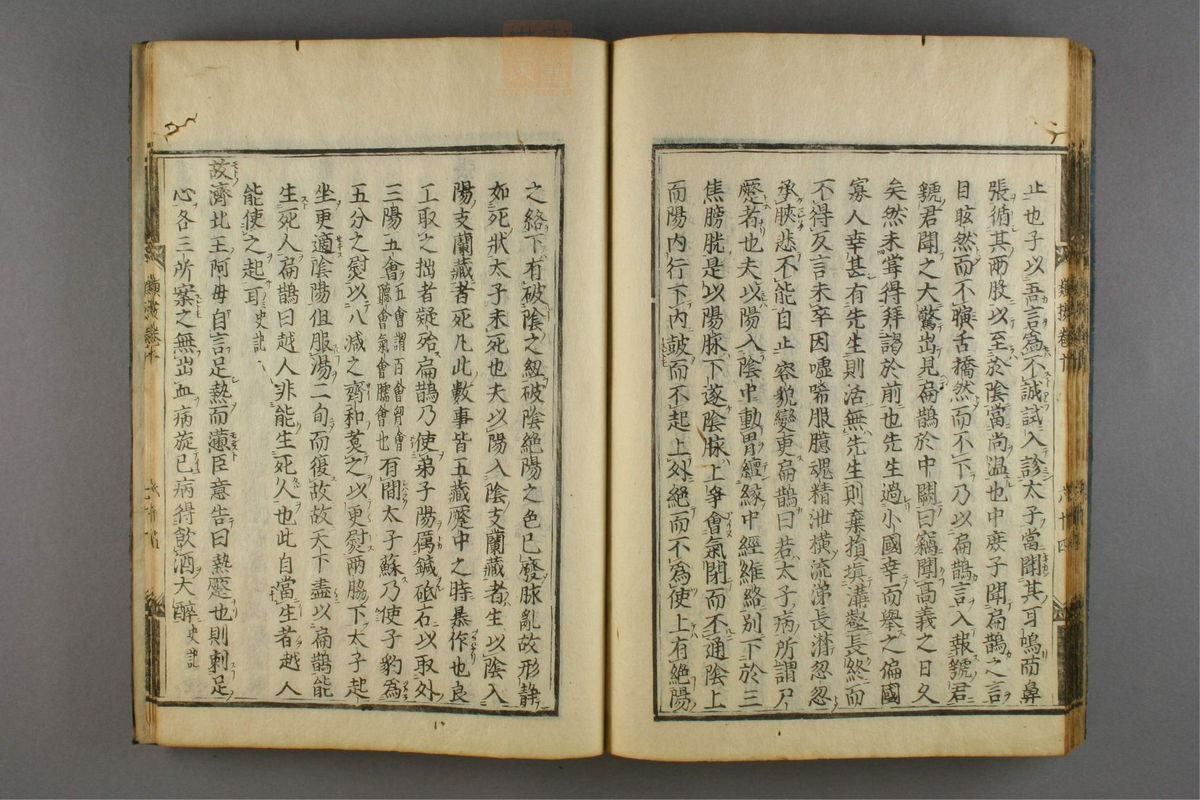 止也子以吾言為不誠試入診太子當聞其耳鳴而鼻
張循其兩股以至於陰當尚溫也中庶子聞扁鵲之言
目眩然而不瞚舌撟然而不下乃以扁鵲言入報虢君
虢君聞之大驚出見扁鵲於中闕曰竊聞高義之日久
矣然未甞得拜謁於前也先生過小國幸而舉之偏國
寡人幸甚有先生則活無先生則棄捐填溝壑長終而
不得反言未卒因噓唏服臆魂精泄橫流涕長潸忽忽
承䀹悲不能自止容貌變更扁鵲曰若太子病所謂尸
蹷者也夫以陽入陰中動胃繵縁中經維絡別下於三
焦膀胱是以陽脉下遂陰脉上爭會氣閉而不通陰上
而陽內行下內皷而不起上外絕而不為使上有絕陽
之絡下有破陰之紐破陰絕陽之色已廢脉亂故形靜
如死狀太子未死也夫以陽入陰支蘭藏者生以陰入
陽支蘭藏者死凡此數事皆五藏蹷中之時暴作也良
工取之拙者疑殆扁鵲乃使弟子陽厲鍼砥石以取外
三陽五會五會謂百會胷會聽會氣會臑會也有間太子蘇乃使子豹為
五分之熨以八減之齊和煑之以更熨兩脇下太子起
坐更適陰陽伹服湯二旬而復故故天下盡以扁鵲能
生死人扁鵲曰越人非能生死人也此自當生者越人
能使之起耳史記
故濟北王阿母自言足熱而懣臣意告曰熱蹷也則刺足
心各三所案之無出血病旋已病得飲酒大醉史記